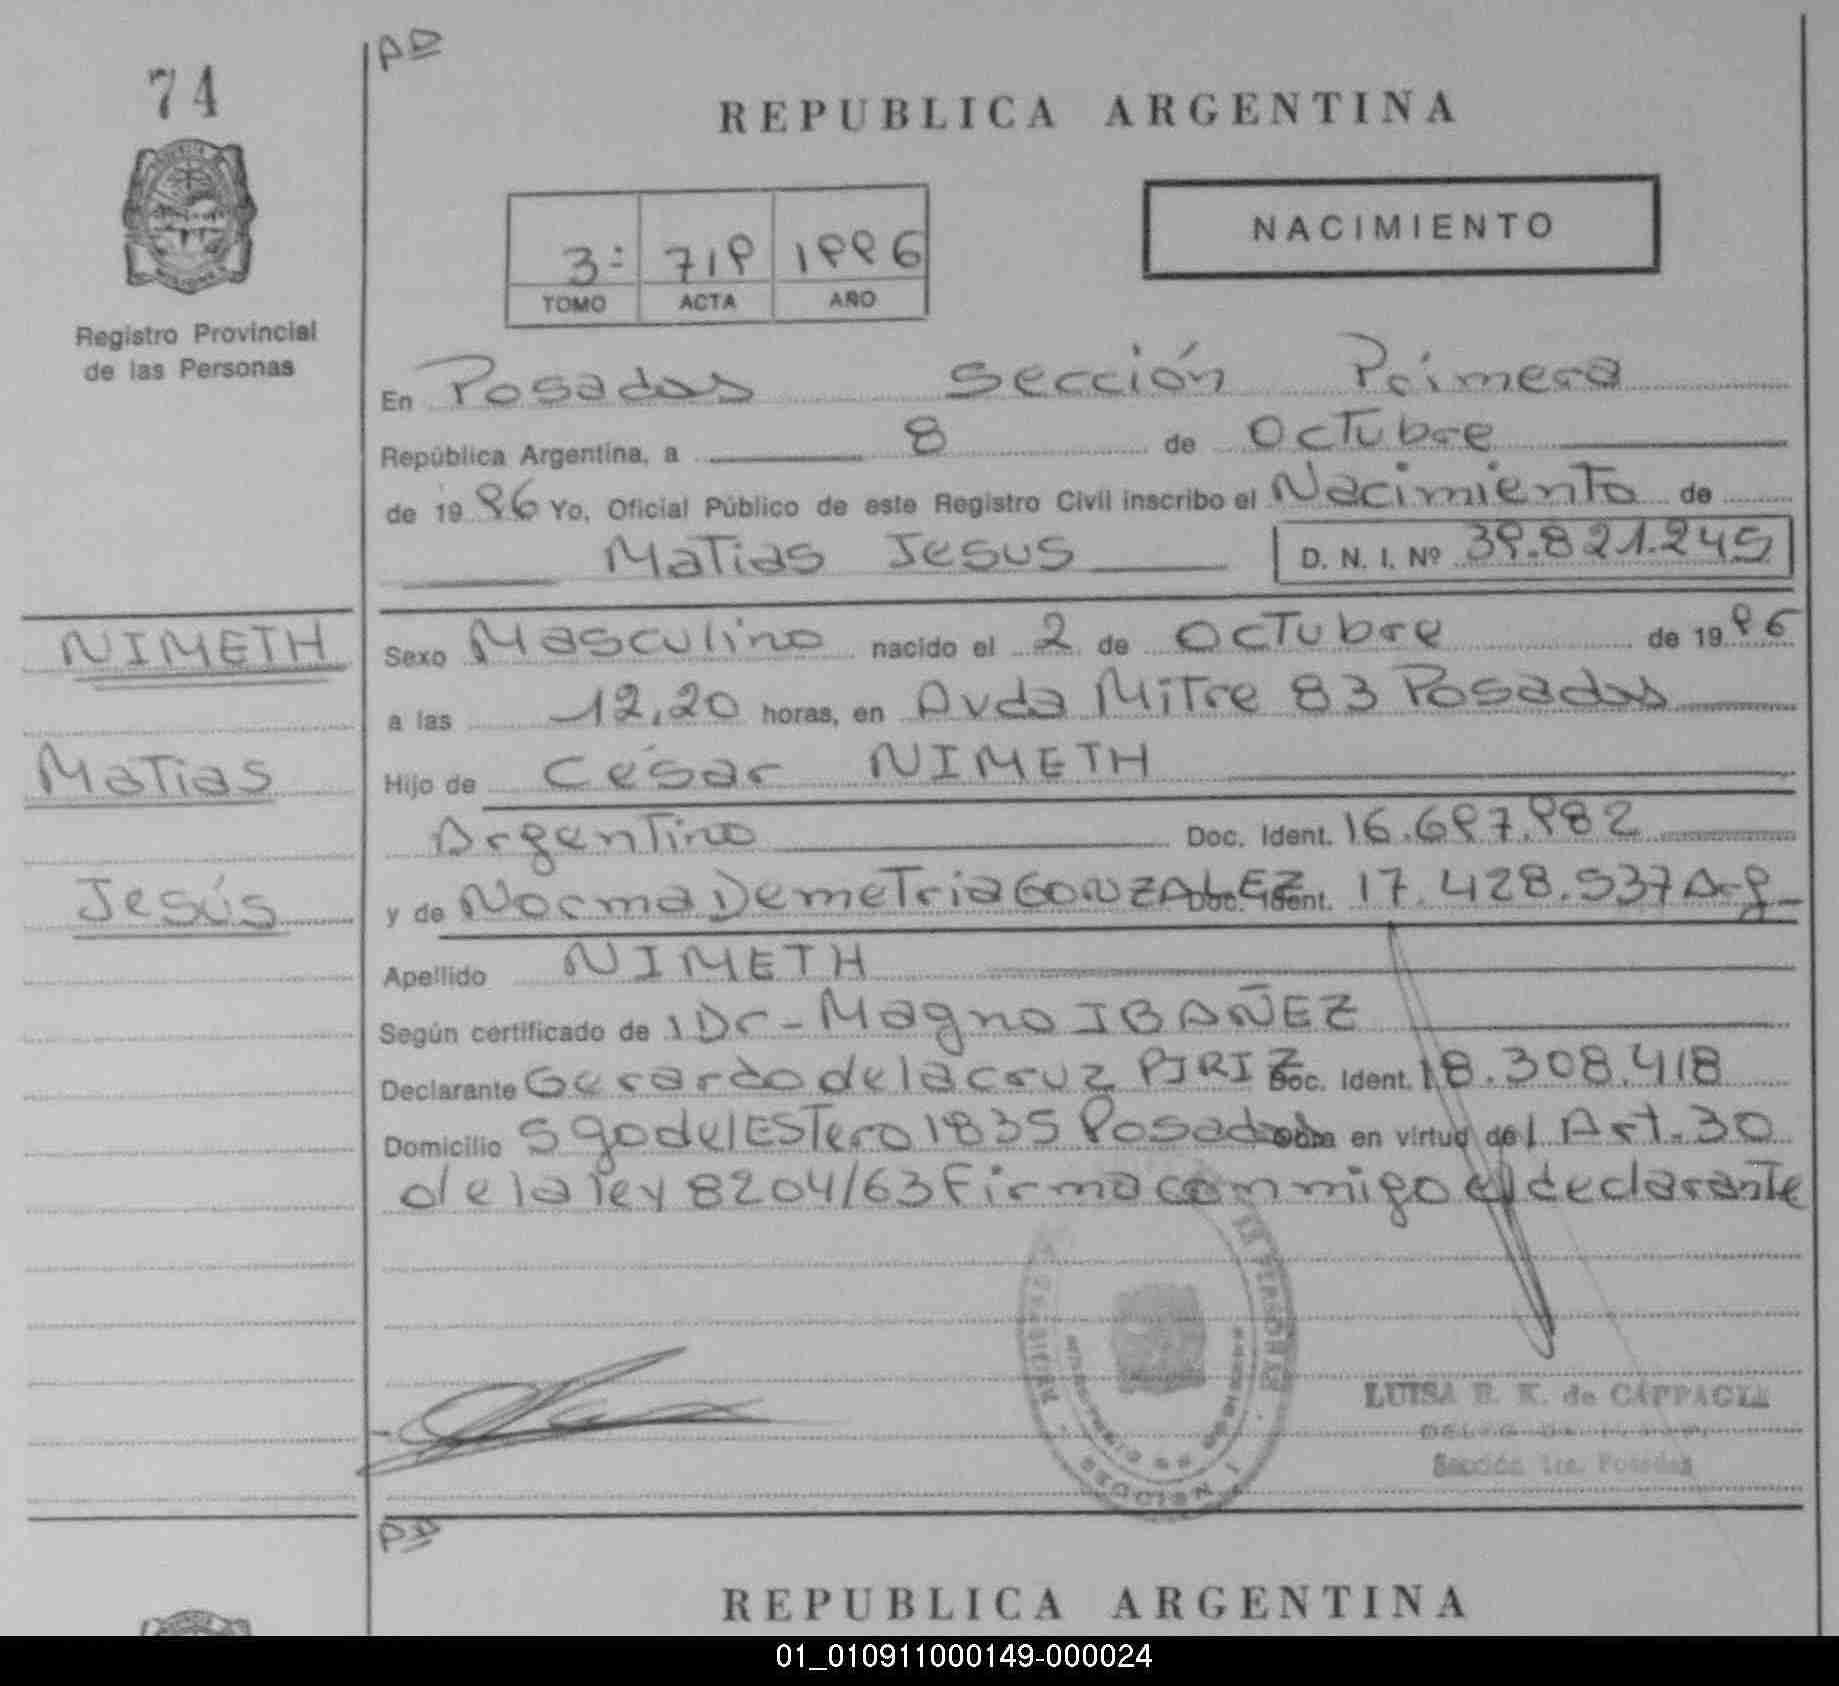 74
PD
REPUBLICA ARGENTINA
NACIMIENTO
3: 719 1996
TOMO ACTA AÑO
Registro Provincial
de las Personas
En Posadas Sección Primera
República Argentina, a 8 de Octubre
de 1996 Yo, Oficial Público de este Registro Civil inscribo el Nacimiento de
Matias Jesus D. N. I. Nº 39.821.245
NIMETH
Matias
Jesús
Sexo Masculino nacido el 2 de Octubre de 1996
a las 12,20 horas, en Avda Mitre 83 Posadas
Hijo de César NIMETH
Argentino Doc. Ident. 16.697.982
y de Norma Demetria GONZALEZ Doc. Ident. 17.428.537 Arg
Apellido NIMETH
Según certificado de 1 Dr - Magno IBAÑEZ
Declarante Gerardo de la cruz PIRIZ Doc. Ident. 18.308.418
Domicilio Sgo del Estero 1835 Posadas Obra en virtud del Art. 30
de la ley 8204/63 Firma conmigo el declarante
SECCION 1
LUISA E. K. de CAPPAGLI
Sección 1ra. Posadas
PD
REPUBLICA ARGENTINA
01_010911000149-000024